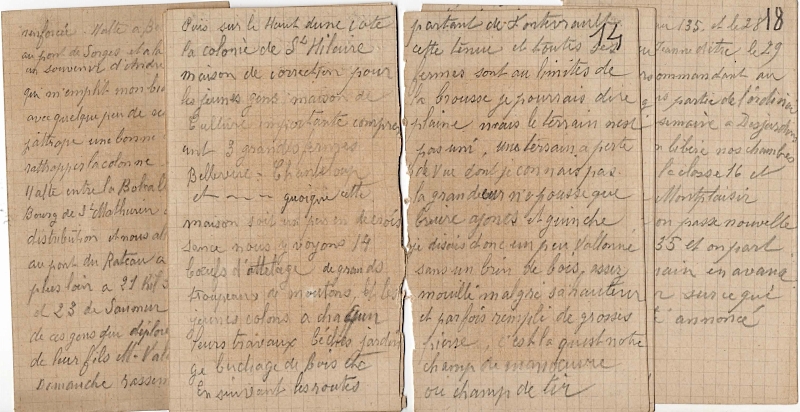 renforcée. Halte à
au pont de Sorges et a la
un souvenir d'André
qui m'emplit mon
avec quelque peu de
j'attrape une bonne
rattrapper la colonne
Halte entre la
Bourg de St Mathurin
distribution et nous
au pont du Rateau
plus loin a 21
et 23 de Saumur
de ces gens qui
de leur fils Mr
Dimanche
Puis sur le Haut d'une cote
la colonie de St Hilaire
maison de correction pour
les jeunes gens maison de
Culture importante compre
ant 3 grandes fermes
Bellevere - Chanteloup
et - - - - quoique cette
maison soit un peu en decrois
sance nous y voyons 14
bœufs d'attelage de grands
troupeaux de moutons. Et les
jeunes colons a chaqun
leurs travaux Béches jardin
ge buchage de bois etc
En suivant les routes
14
partant de Fontevrault
cette tenue et toutes ses
fermes sont au limites de
la brousse je pourrais dire
plaine mais le terrain n'est
pas uni, une terrain a perte
de vue dont je connais pas
la grandeur n'y pousse que
bruère ajones et geunche
je disais donc un peu vallonné
sans un brin de bois, assez
mouillé malgré sa hauteur
et parfois remple de grosses
pierre, c'est la qu'est notre
champ de manoeuvre
ou champ de tir
18
au 135, et le 28
d'être le 29
commandant au
partie de l'ordinaire
semaine a Desjardins
libère nos chambres
la classe 16 et
Montplaisir
on passe nouvelle
35 et on part
main en avance
sur ce qué
annoncé